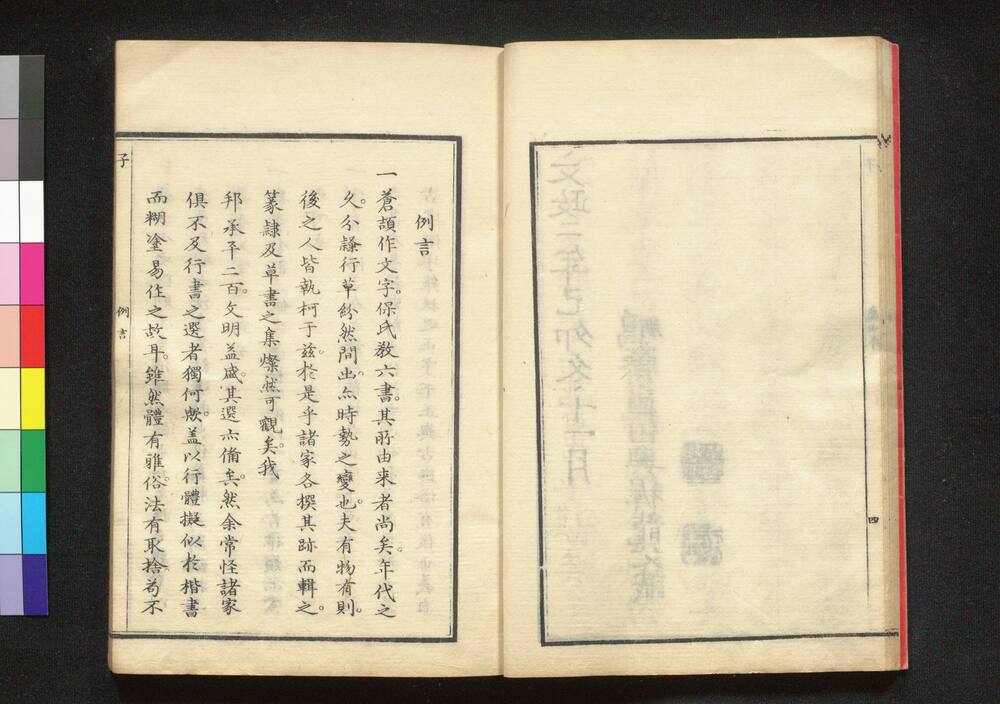 例言
一蒼頡作文字。保氏教六書。其所由来者尚矣。年代之
久。分隸行草紛然間出。亦時勢之變也。夫有物有則。
後之人皆執柯于茲。於是乎諸家各撰其跡而輯之。
篆隷及草書之集燦然可觀矣。我
邦承平二百。文明益盛。其選亦備矣。然余常怪諸家
俱不及行書之選者獨何歟。盖以行體擬似於楷書
而糊塗易住之故耳。雖然體有雅俗。法有取捨。苟不
子
例言
四